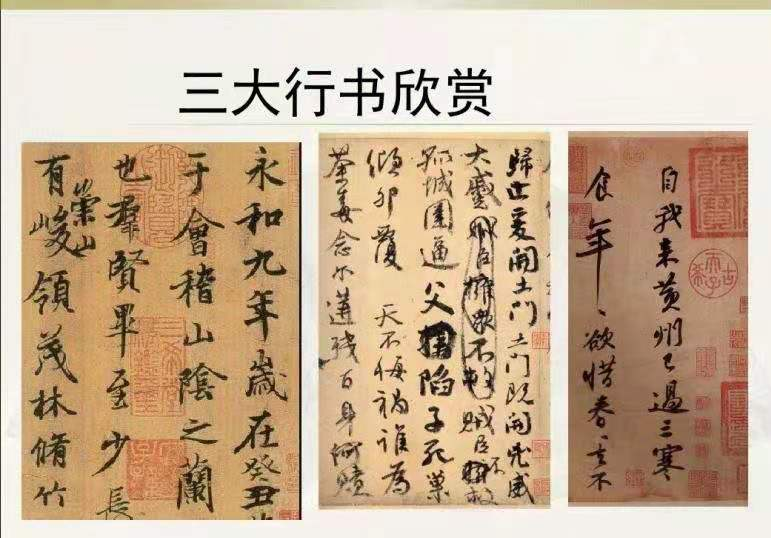 三大行书欣赏
永和九年歲在癸丑
于會稽山陰之蘭
也羣賢畢至少長
有崇山峻領茂林脩竹
歸止爰開土門土門既開凶威
大蹙賊臣擁衆不救賊臣不救
孤城圍逼父陷子死巢
傾卵覆天不悔禍誰為
荼毒念尔遘殘百身何贖
自我来黄州已過三寒
食年〻欲惜春春去不